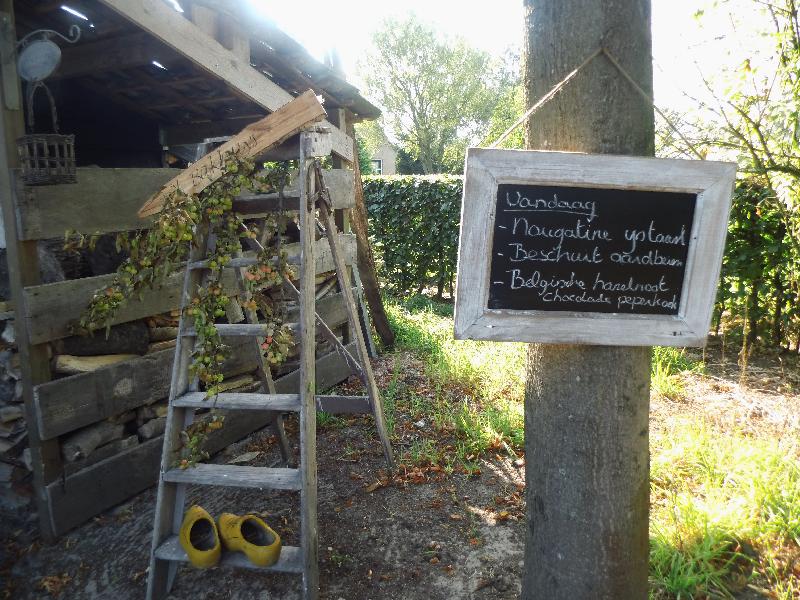 Vandaag
- Nougatine ijstaart
- Beschuit aardbeien
- Belgische hazelnoot
chocolade peperkoek